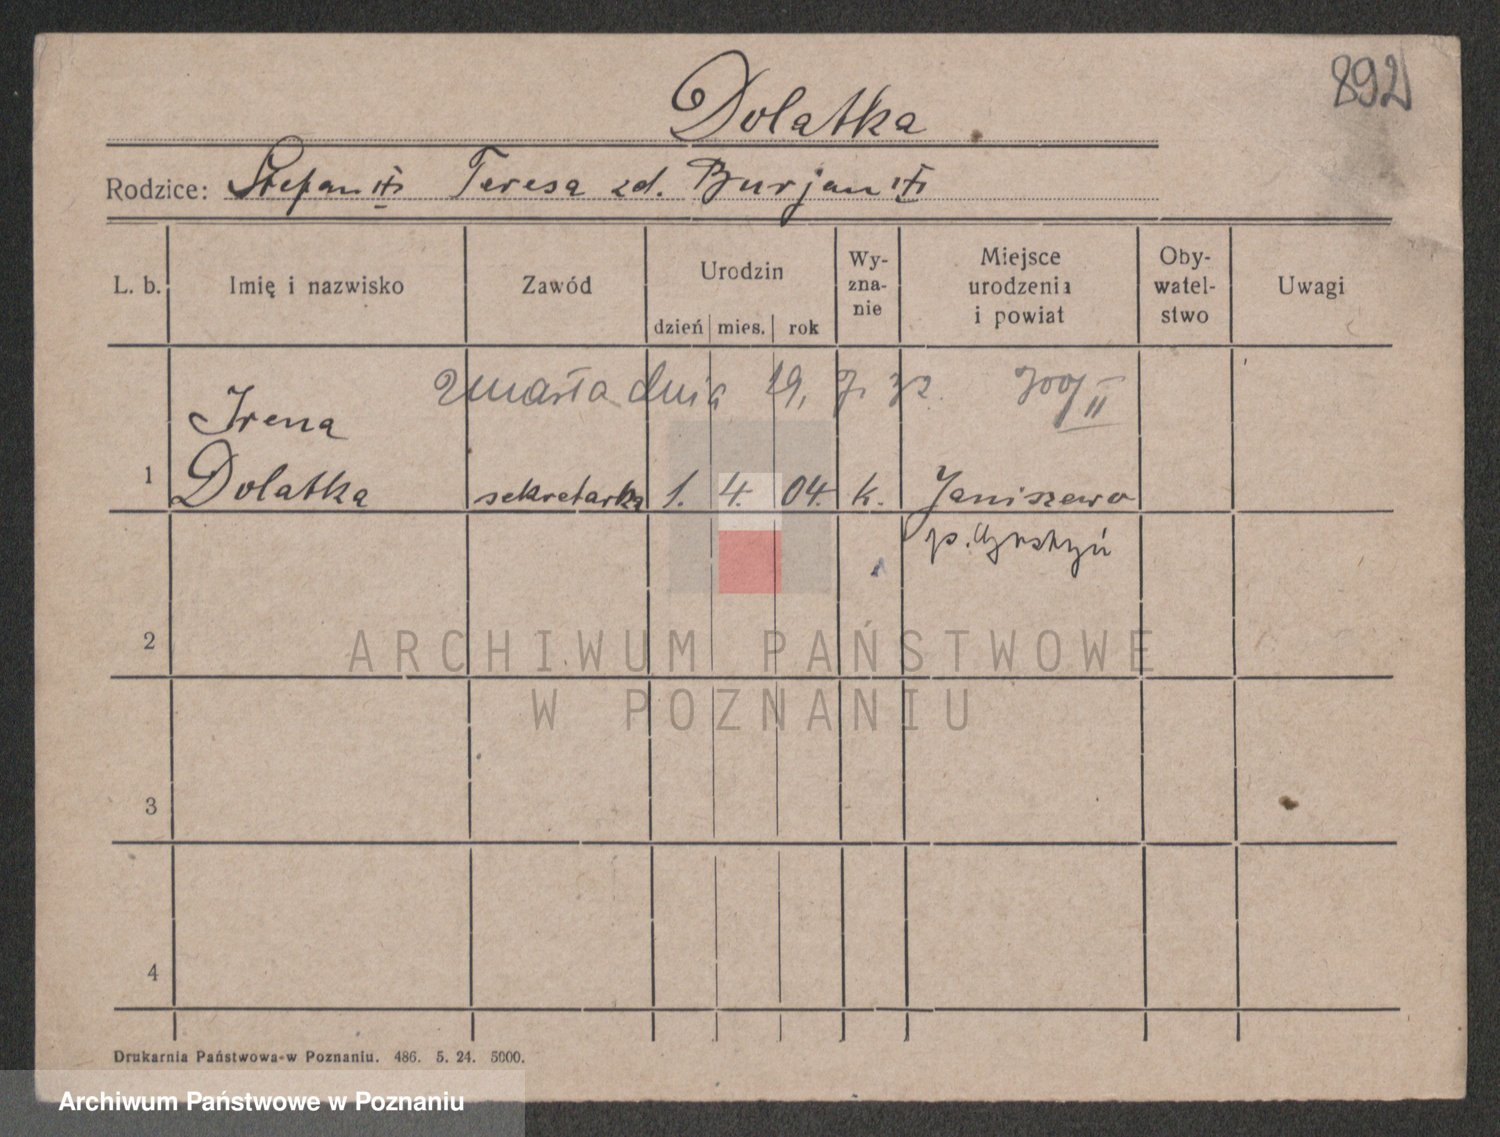 892
Dolatka
Rodzice: Stefan Teresa zd. Burjan
L. b. Imię i nazwisko Zawód Urodzin dzień mies. rok Wy-zna-nie Miejsce urodzenia i powiat Oby-watel-stwo Uwagi
Zmarła dnia 19. 7. 32.
Irena
1 Dolatka sekretarka 1. 4. 04. k. Janiszewo
p.
2
ARCHIWUM PAŃSTWOWE
W POZNANIU
3
4
Drukarnia Państwowa w Poznaniu. 486. 5. 24. 5000.
Archiwum Państwowe w Poznaniu